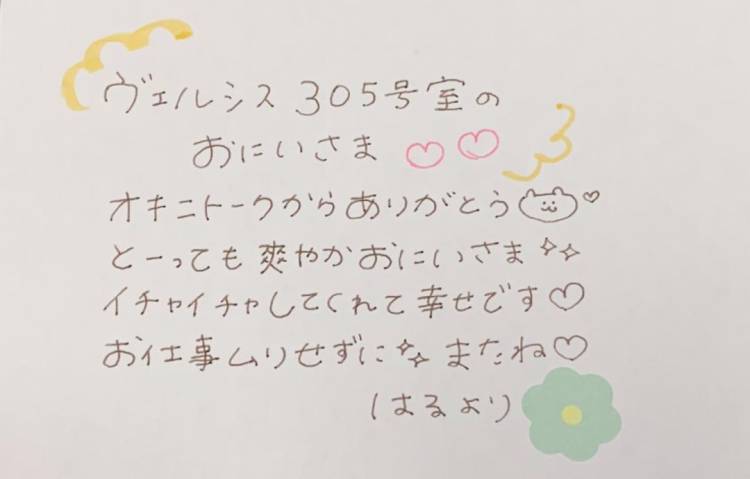 ヴェルシス 305号室の
おにいさま ♡♡
オキニトークからありがとう♡
とーっても爽やかおにいさま✧✧
イチャイチャしてくれて幸せです♡
お仕事ムリせずに✧✧ またね♡
はるより